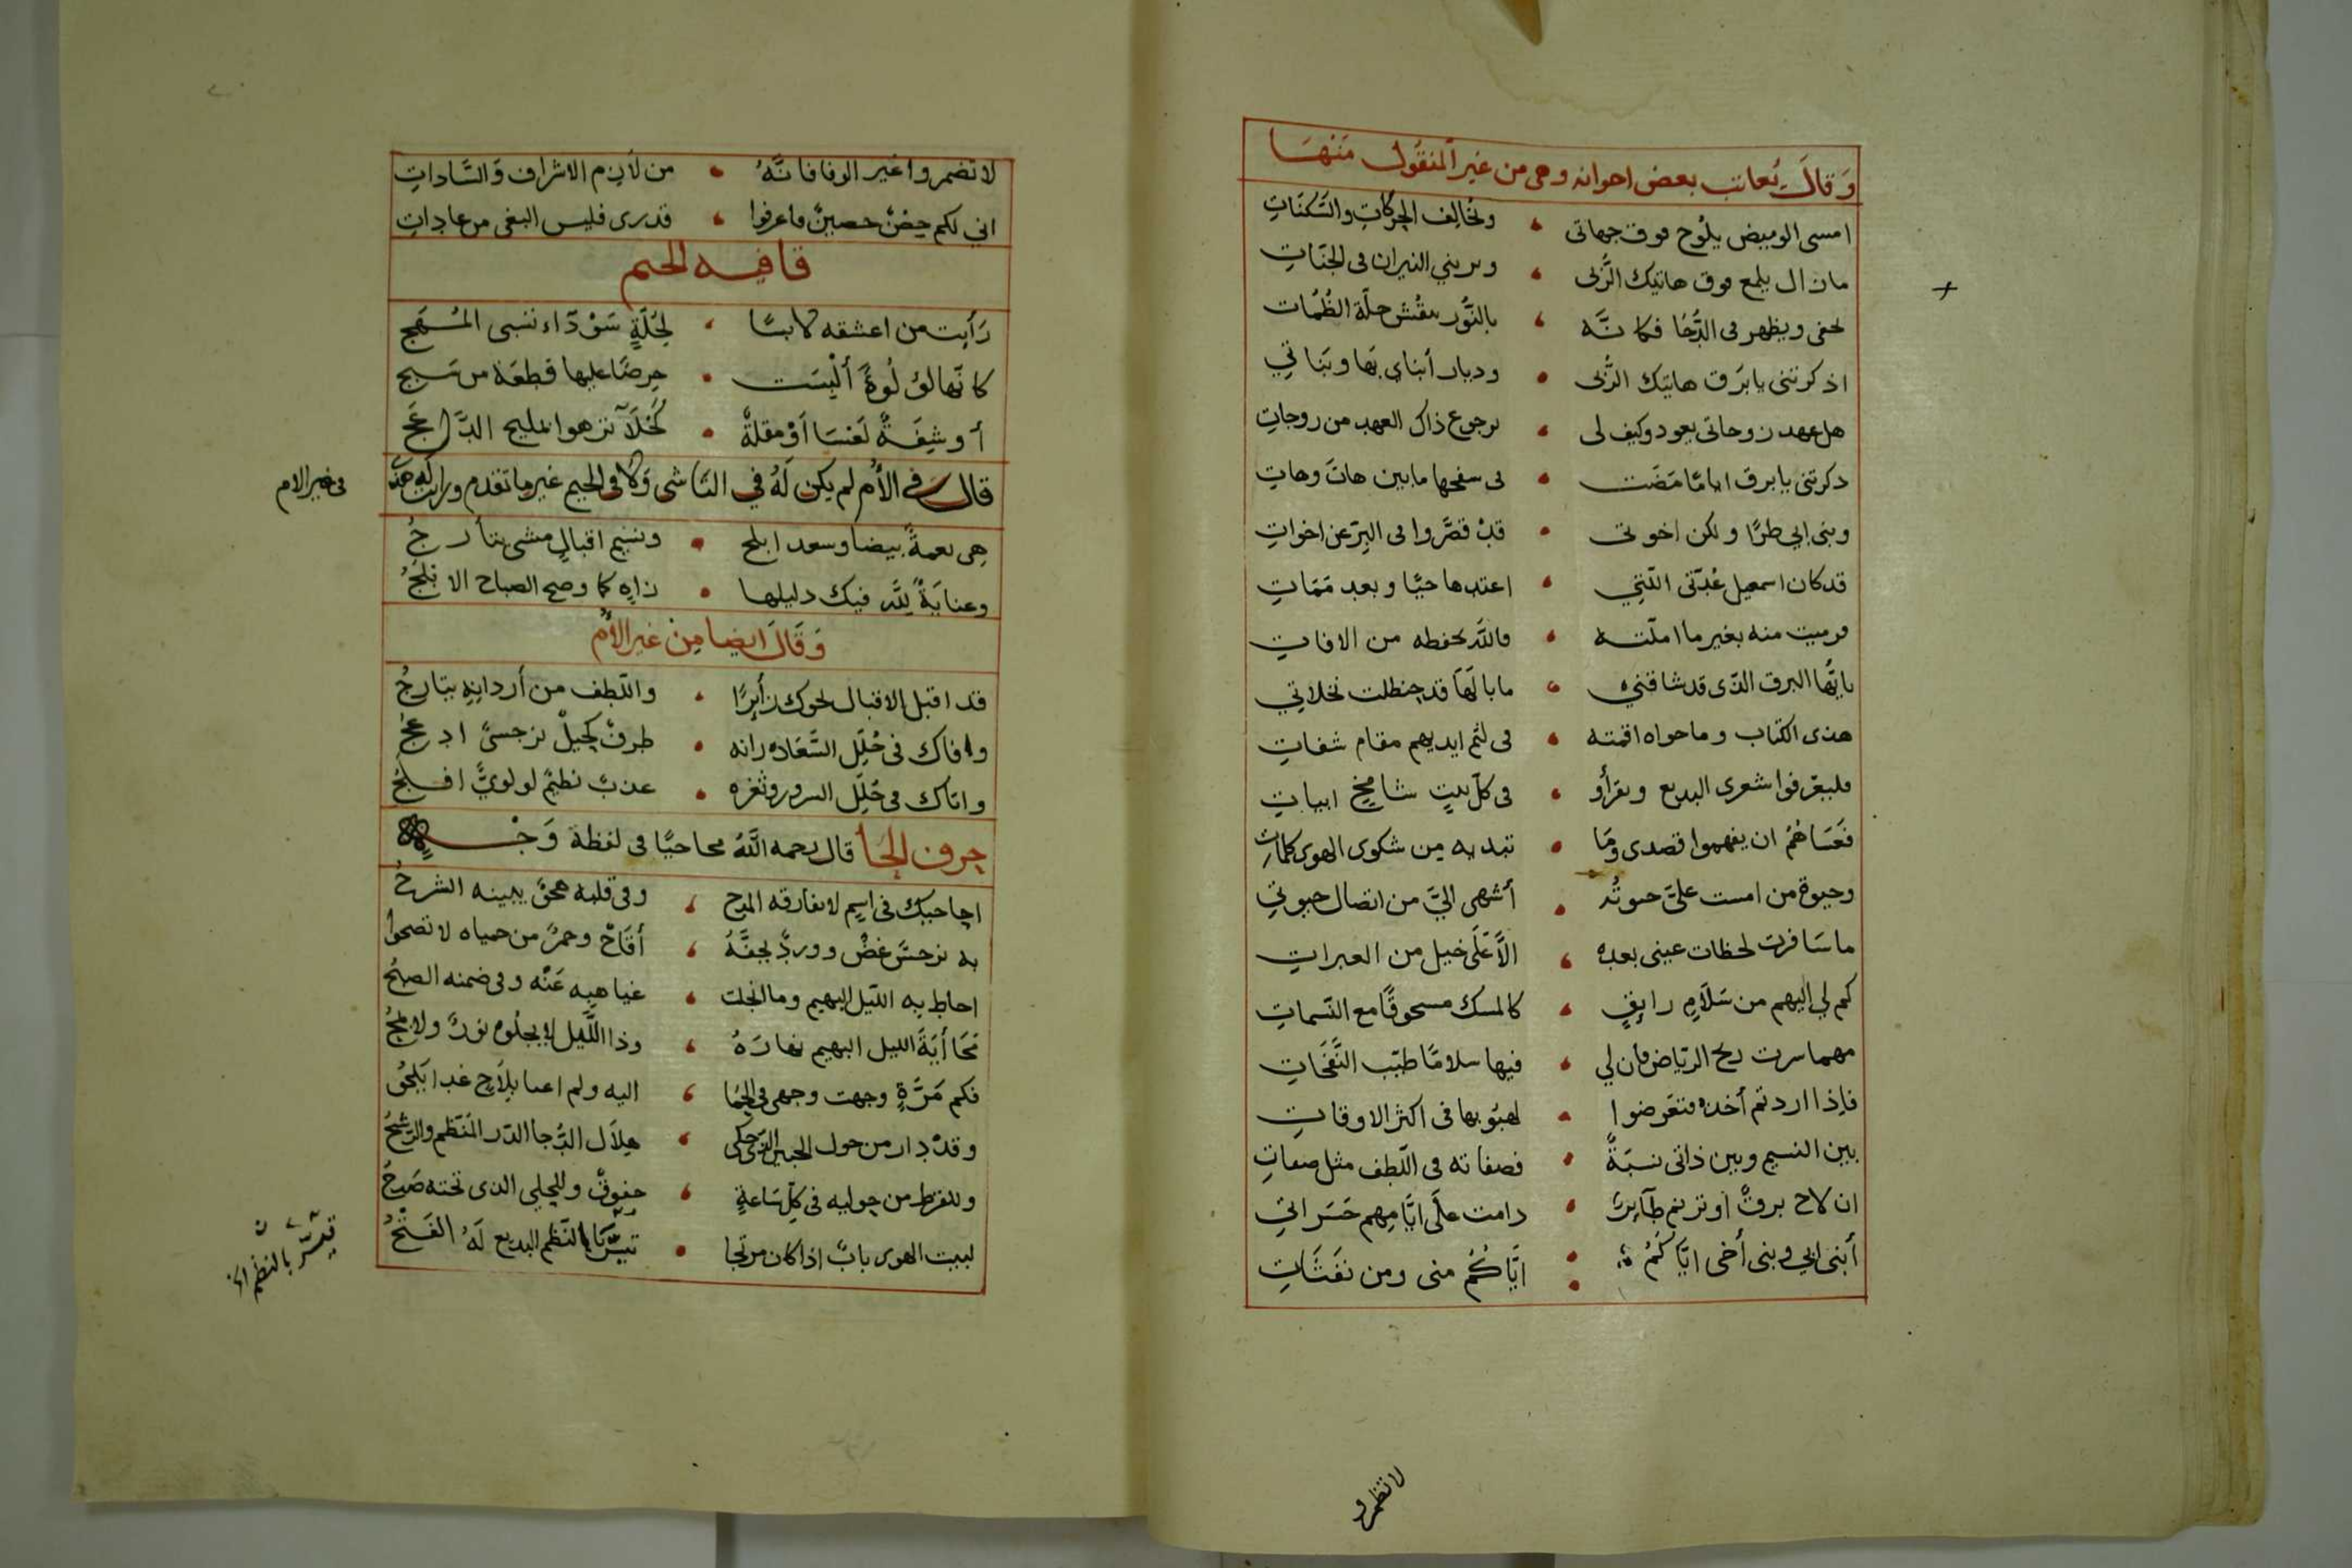 وَقَالَ يُعاتب بعض اخوانه وهى من غير المنقول مَنهَا
امسى الوميض يلُوح فوق جهاتى ؛ وتخالِف الحركات والسَّكنَاتِ
مازال يلمع فوق هاتيك الرُّبى ؛ ويرينى النيران فى الجنَاتِ
يخفى ويظهر فى الدُّجَا فكانَّه ؛ بالنُّور حلّة الظُلمُات
اذكرتنى يا برَق هاتيك الرُّبى • وديار أبناي بهَا وبَناتي
هل عهد روحاتى يعود وكيف لى ؛ برجوع ذاك العهد من روحاتِ
ذكرتنى يا برق ايامًا مَضَت • فى سفحها ما بين هاتَ وهاتِ
وبنى ابي طرًا ولكن اخوتى • قدْ قصَّروا فى البِرّ عن اخواتِ
قد كان اسمعيل عُدّتى الّتي • اعتدها حيًّا وبعد مَمَاتِ
فرميت منه بغير ما املّته • فاللَّه يحفظه من الافاتِ
يايُّها البرق الذى قد شاقني • ما بالَهَا قد حنظلت نخلاتي
هذى الكتاب وما حواه اقمته • فى لثم ايديهم مقام شفاتِ
فليعرفوا شعرى البديع ويقرأو • فى كلّ بيتٍ شامخٍ ابياتِ
فعَسَاهُمُ ان يفهموا قصدى ومَا • تبديه من شكوى الهوى كلماتِ
وحيوة من امست علىَّ • أشهى اليَّ من اتصال حيوتي
ما سَافرت لحظات عينى بعده ؛ الاَّ عَلَى خيل من العبراتِ
كم لي إليهم من سَلاَمٍ رايقٍ ؛ كالمسك مسحوقًا مع النّسماتِ
مهما سرت ريح الرّياض فان لي ؛ فيها سلامًا طيّب النَّفَحَاتِ
فاِذا اردتم أخذه فتعَرضوا • لهبُوبها فى اكثر الاوقاتِ
بين النسيم وبين ذاتى نسبَةٌ • فصفاته فى اللّطف مثل صفاتِ
ان لاح برقٌ او ترنم طآيرٌ • دامت علَى ايَّامِهم حَسَراتي
أبنى ابي وبنى أخى ايَّاكُمُ • ايَّاكُمُ منى ومن نفَثَاتِ
لا تضمرو
لا تضمروا غير الوفا فانَّهُ • من لازم الاشراف وَالسَّاداتِ
انى لكم حِصْنٌ حصينٌ فاعرفوا ؛ قدرى فليس البغى من عاداتِ
قافيه الجيم
رَأيت من اعشقه لابسًا ؛ لحُلّةٍ سَوْدَاء تسبى المُهَج
كانّهَا لؤلُوةٌ ألْبسَت • حِرصًا عليها قطعَة من سَبج
أو شِفَةٌ لَعْسَا اَوْ مقلةٌ • كَحْلآَ تزهوا بمليح الدَّعَج
قال فى الأُم لم يكن لَهُ في النَّاشى وَلا فى الجيم غير ما تقدم ورايت له هذه
فى غير الام
هِى نعمةٌ بيضا وسعد ابلج • ونسيم اقبالٍ مشى يتأرجُ
وعنايَةٌ لِلَّهِ فيك دليلها • زاهٍ كما وضح الصباح الابْلَجُ
وَقَالَ ايضا مِن غير الأُم
قد اقبل الاقبال نحوك زَأيرًا • واللّطف من أردانِهِ يتارجُ
وافاك فى حُلَلِ السَّعَاده زانه • طرفٌ كحيلٌ نرجسىٌّ ادعجُ
واتاك فى حُلَلِ السرور وثغره • عذبٌ نظيمٌ لولويٌّ افلجُ
حرف الحَا قال رحمه اللَّهُ محاجيًا فى لفظة وَجْه
احاجيك فى اسمٍ لا يفارقه المدح ؛ وفى قلبه يبينه الشرحُ
به نرجسٌ غضٌ ووردٌ يحفَّهُ ؛ أقَاحٌ وخمرٌ من حمياه لا تصحوا
احاط به اللّيل البهيم وما انجلت ؛ غياهبِه عَنْه وفى ضمنه الصبحُ
مَحَا أيَةَ الليل البهيم نهارَهُ ؛ وذا اللَّيل لا يجلُوه نورٌ ولا لمحُ
فكم مَرَّةٍ وجهت وجهى فى ؛ اليه ولم اعبا بلاَحٍ غدا يَلحُو
وقدْ دار من حول الجبين الذى حكى ؛ هِلاَل الدُّجا الدّر المنَظم والرّشحُ
وللقرط من حوليه فى كلّ سَاعةٍ ؛ خفوقٌ وللحلي الذى تحته صَدحُ
لبيت الهوى بابٌ اذا كان مرتجا • تيسَّرَ بالنَّظم البديع لَهُ الفَتْحُ
تيسّر بالنظم